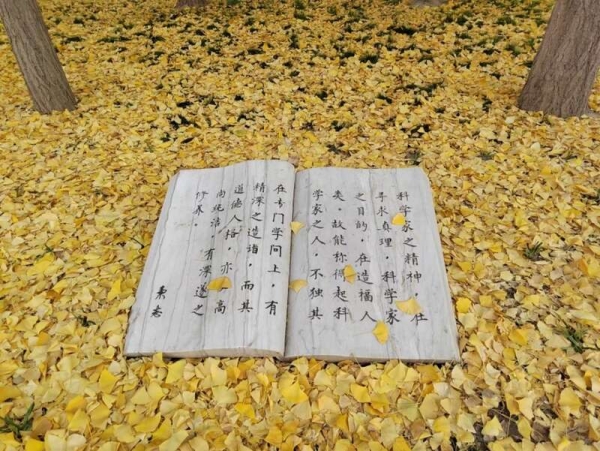 科学家之精神,在
寻求真理,科学家
之目的,在造福人
类,故能称得起科
学家之人,不独其
在专门学问上,有
精深之造诣,而其
道德人格,亦高
尚纯洁,有深邃之
修养。
秉志